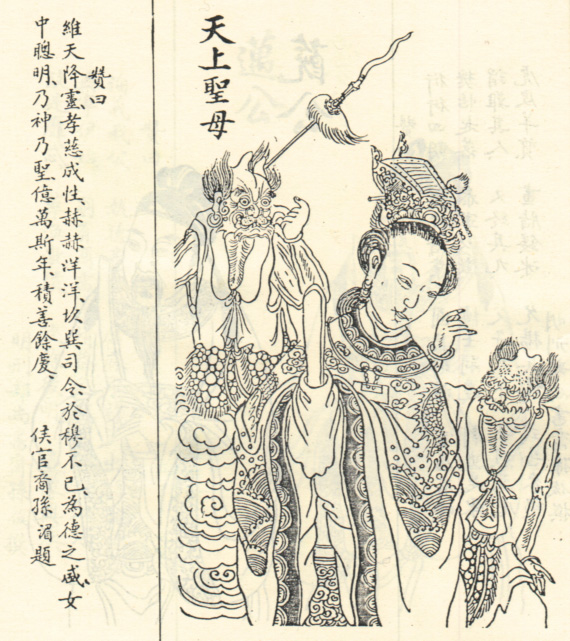 天上聖母
贊曰
維天降靈、孝慈成性、赫赫洋洋、坎巽司令、於穆不已、為德之盛、女
中聰明、乃神乃聖、億萬斯年、積善餘慶、
侯官裔孫 湄題